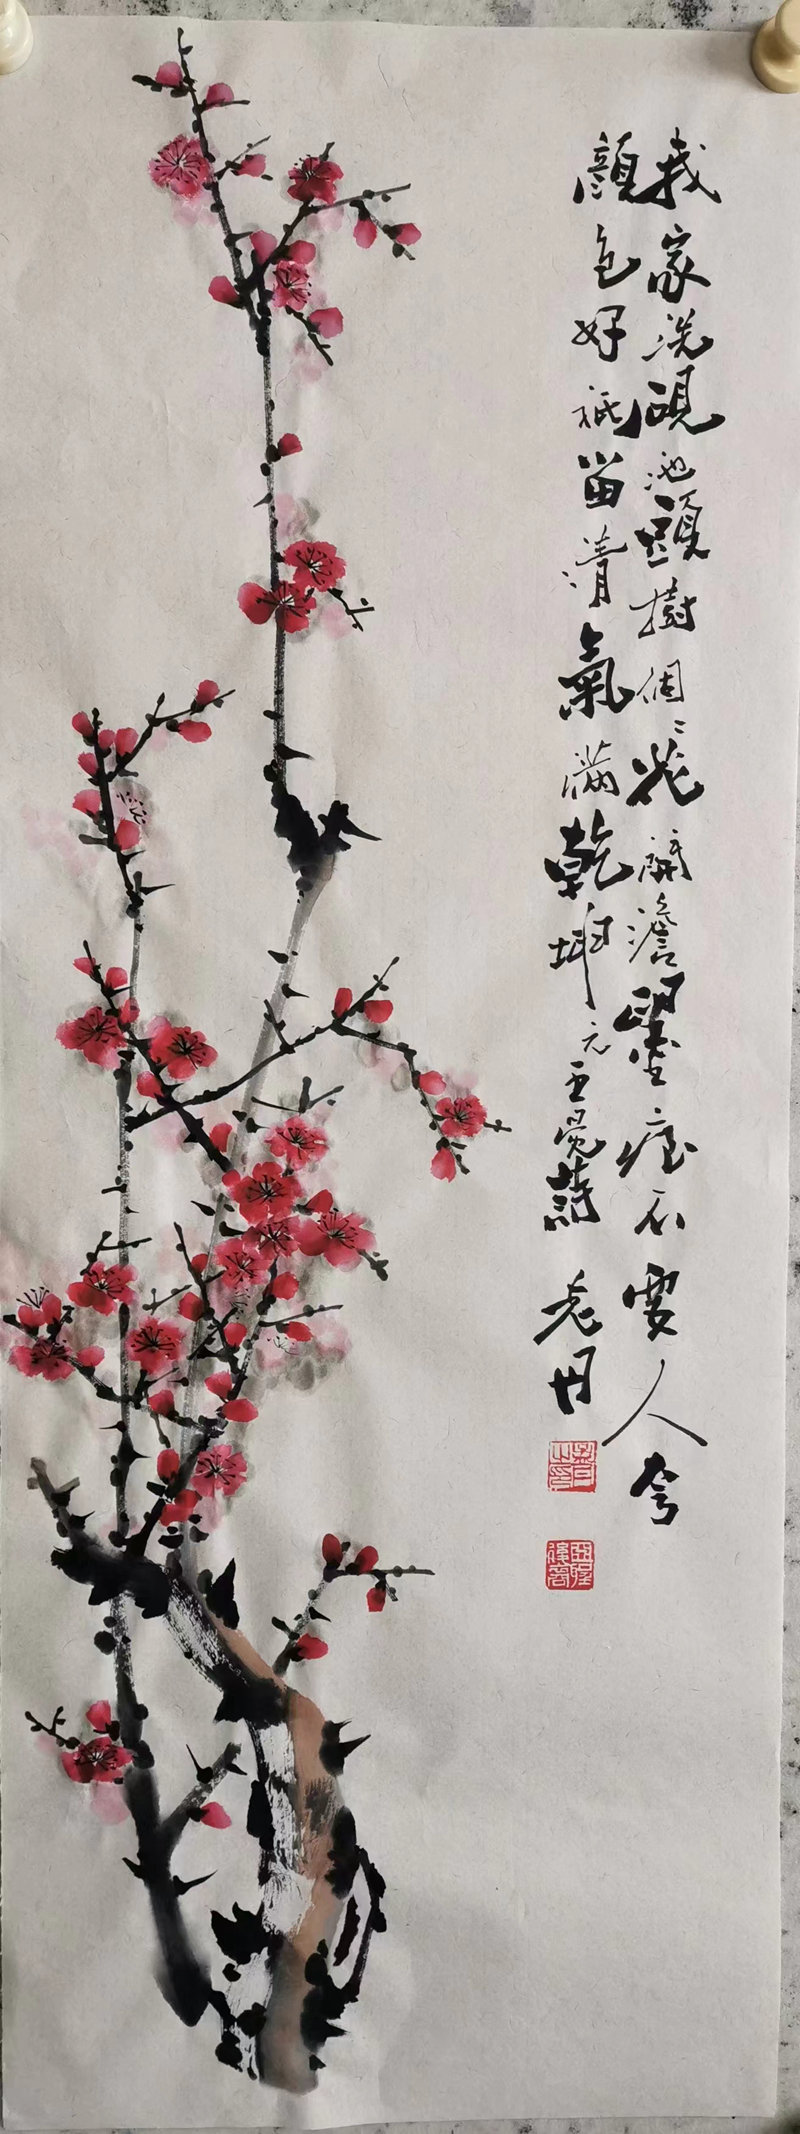 我家洗硯池頭樹個々花開澹墨痕不要人夸
顏色好祗留清氣滿乾坤 元王冕詩 老丹